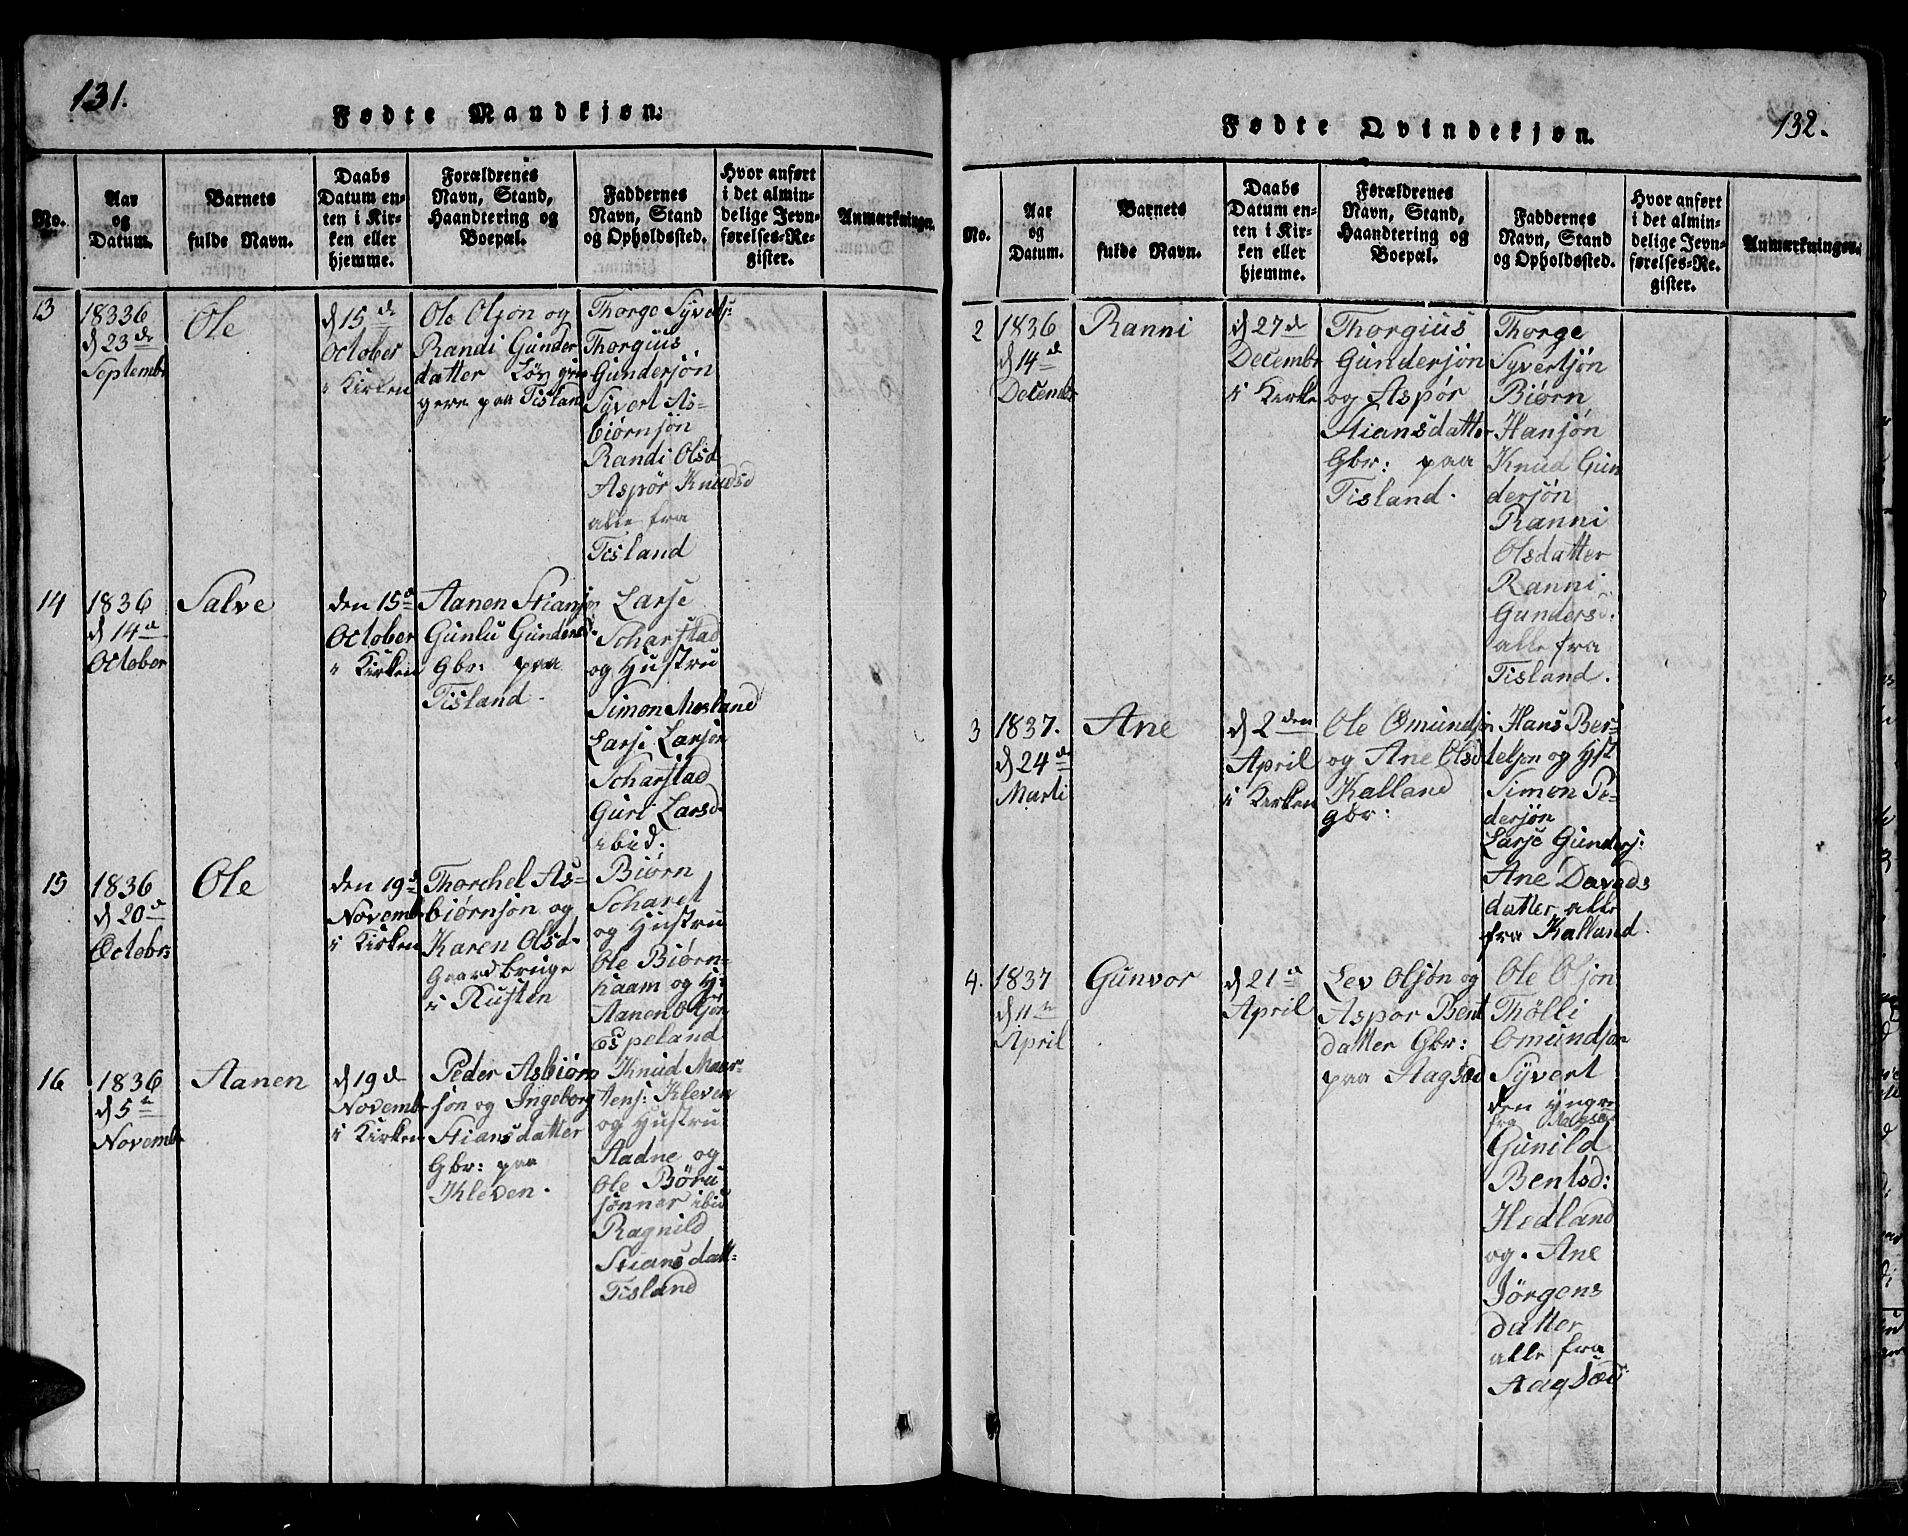 131.
Fødte Mandkjøn.
No.
Aar
og
Datum.
Barnets
fulde Navn.
Daabs
Datum en-
ten i Kir-
ken eller
hjemme.
Forældrenes
Navn, Stand,
Haandtering og
Boepæl.
Faddernes
Navn, Stand
og Opholdssted.
Hvor anført
i det almin-
delige Jevn-
førelses-Re-
gister.
Anmærkninger.
13
18336
d 23de
Septembr
Ole
d 15de
October
i Kirken
Ole Olson og
Randi Gunder
datter
gere paa Tisland
Thorge Syverts:
Thorgius
Gundersøn
Syvert As=
biørnsøn
Randi Olsd
Aspør Knudsd
alle fra
Tisland
14
1836
d 14de
October
Salve
den 15d
October
i Kirken
Aanen Stians
Gunlu Gunders
Gbr: paa
Tisland.
Larse
Scharstad
og Hustru
Simon Mosland
Larse Larsøn
Scharstad
Guri Larsd.
ibid.
15
1836
d 20d
October
Ole
den 19d
Novemb
i Kirken
Thorchel As=
biørnsøn og
Karen Olsd.
Gaardbruge
i Rusten
Biørn
Scharet
og Hustru
Ole Biørn=
haam og H:
Aanen Olsøn
Espeland
16
1836
d 5te
Novembr
Aanen
d 19d
Novembr
i Kirken
Peder Asbiørn
søn og Ingeborg
Stiansdatter
Gbr: paa
Kleven.
Knud Maar-
tens: Kleven
og Hustru
Aadne og
Ole Børu
sønner ibid
Ragnild
Stiansdatt=
Tisland
132.
Fødte Qvindekjøn.
No.
Aar
og
Datum.
Barnets
fulde Navn.
Daabs
Datum en-
ten i Kir-
ken eller
hjemme.
Forældrenes
Navn, Stand,
Haandtering og
Boepæl.
Faddernes
Navn, Stand
og Opholdssted.
Hvor anført
i det almin-
delige Jevn-
førelses-Re-
gister.
Anmærkninger.
2
1836
d 14d
Decembr
Ranni
d 27d
Decembr
i Kirke
Thorgius
Gundersøn
og Aspør
Stiansdatter
Gbr: paa
Tisland.
Thorge
Syvertsøn
Biørn
Hansøn
Knud Gun
dersøn
Ranni
Olsdatter
Ranni
Gundersd:
alle fra
Tisland.
3
1837.
d 24de
Marti
Ane
d 2den
April
i Kirken
Ole Omundsøn
og Ane Olsd
Kalland
gbr:
Hans Ber-
telsøn og Hst
Simon Pe-
dersøn
Larse Gunders:
Ane Davids
datter alle
fra Kalland.
4.
1837
d 11te
April
Gunvor
d 21d
April
Lev Olsøn og
Aspør Bent
datter Gbr:
paa Aagsæd
Ole Olsøn
Thølli
Omundsøn
Syvert
den yngre
fra Aagsæd
Gunild
Bentsd:
Hedland
og. Ane
Jørgens
datter
alle fra
Aagsæd.